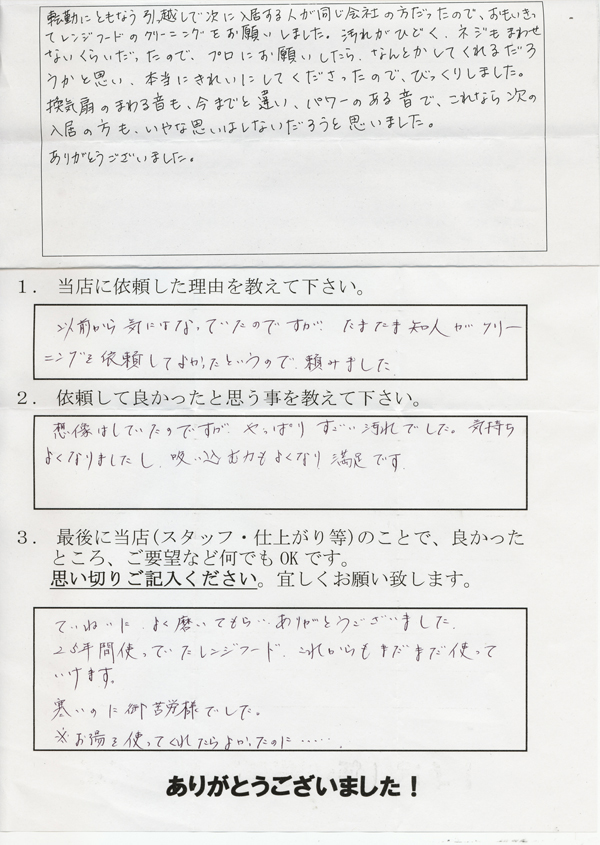 転勤にともなう引越しで次に入居する人が同じ会社の方だったので、おもいきっ
てレンジフードのクリーニングをお願いしました。汚れがひどく、ネジもまわせ
ないくらいだったので、プロにお願いしたら、なんとかしてくれるだろ
うかと思い、本当にきれいにしてくださったので、びっくりしました。
換気扇のまわる音も、今までと違い、パワーのある音で、これなら次の
入居の方も、いやな思いはしないだろうと思いました。
ありがとうございました。
1. 当店に依頼した理由を教えて下さい。
以前から気にはなっていたのですが たまたま知人がクリー
ニングを依頼してよかったというので 頼みました
2. 依頼して良かったと思う事を教えて下さい。
想像はしていたのですが やっぱり すごい汚れでした。気持ち
よくなりましたし 吸い込む力もよくなり 満足です.
3. 最後に当店(スタッフ・仕上がり等)のことで、良かった
ところ、ご要望など何でもOKです。
思い切りご記入ください。宜しくお願い致します。
ていねいに よく磨いてもらい ありがとうございました.
25年間使っていたレンジフード これからもまだまだ使って
いけます。
寒いのに御苦労様でした。
※お湯を使ってくれたらよかったのに……
ありがとうございました！